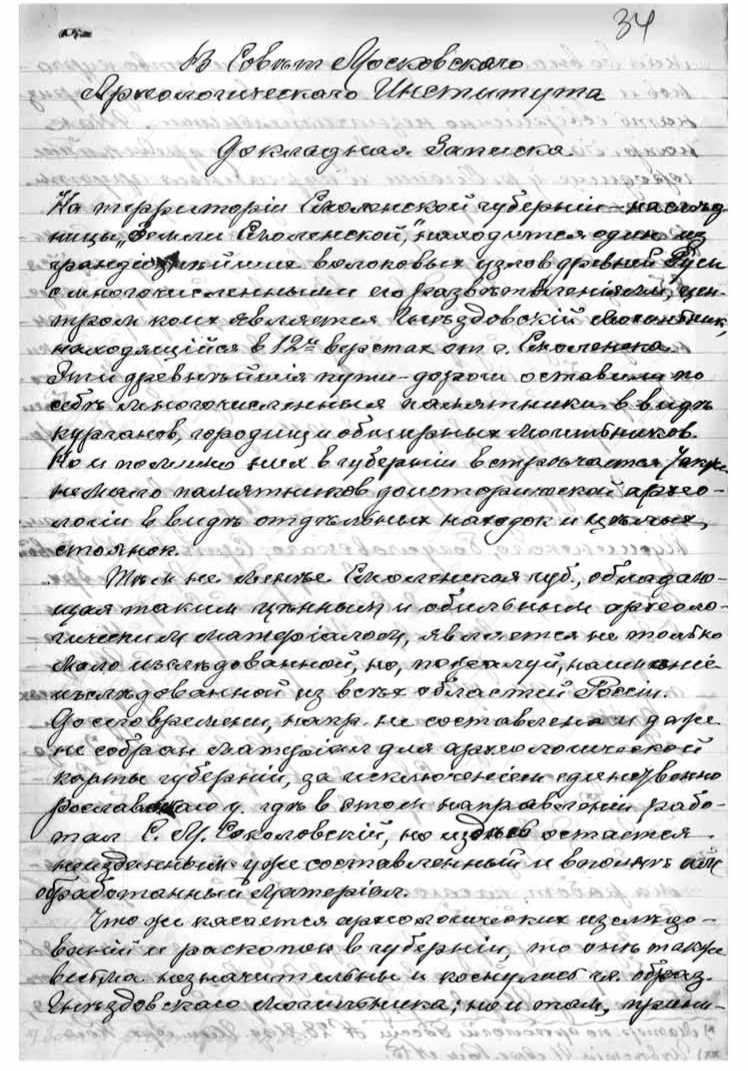 34
Въ Совѣтъ Московскаго
Археологическаго Института
Докладная Записка.
На территоріи Смоленской губерніи – наслѣд-
ницы „Земли Смоленской", находится одинъ из
грандіознѣйших волоковых узлов древней Руси
с многочисленными его развѣтвленіями, цен-
тром коих является Гнѣздовскій Могильник,
находящійся в 12ти верстах от г. Смоленска.
Эти древнѣйшія пути-дороги оставили по
себѣ многочисленныя памятники в видѣ
курганов, городищ и обширных могильников.
Но и помимо них в губерніи встрѣчается
немало памятников доисторической архео-
логіи в видѣ отдѣльных находок и цѣлых
стоянок.
Тѣм не менѣе Смоленская губ., обладаю-
щая таким цѣнным и обильным археоло-
гическим матеріалом, является не только
мало изслѣдованной, но, пожалуй, наименѣе
изслѣдованной из всѣх областей Россіи.
До сего времени, напр. не составлена и даже
не собран матеріал для археологической
карты губерніи, за исключеніем единственно
Рославльскаго у. гдѣ в этом направленіи рабо-
тал С. М. Соколовскій, но и здѣсь остается
неизданным уже составленный и вполнѣ им
обработанный матеріал.
Что же касается археологических изслѣдо-
ваній и раскопок в губерніи, то онѣ также
весьма незначительны и коснулись гл. образ.
Гнѣздовскаго Могильника; но и там, прини-